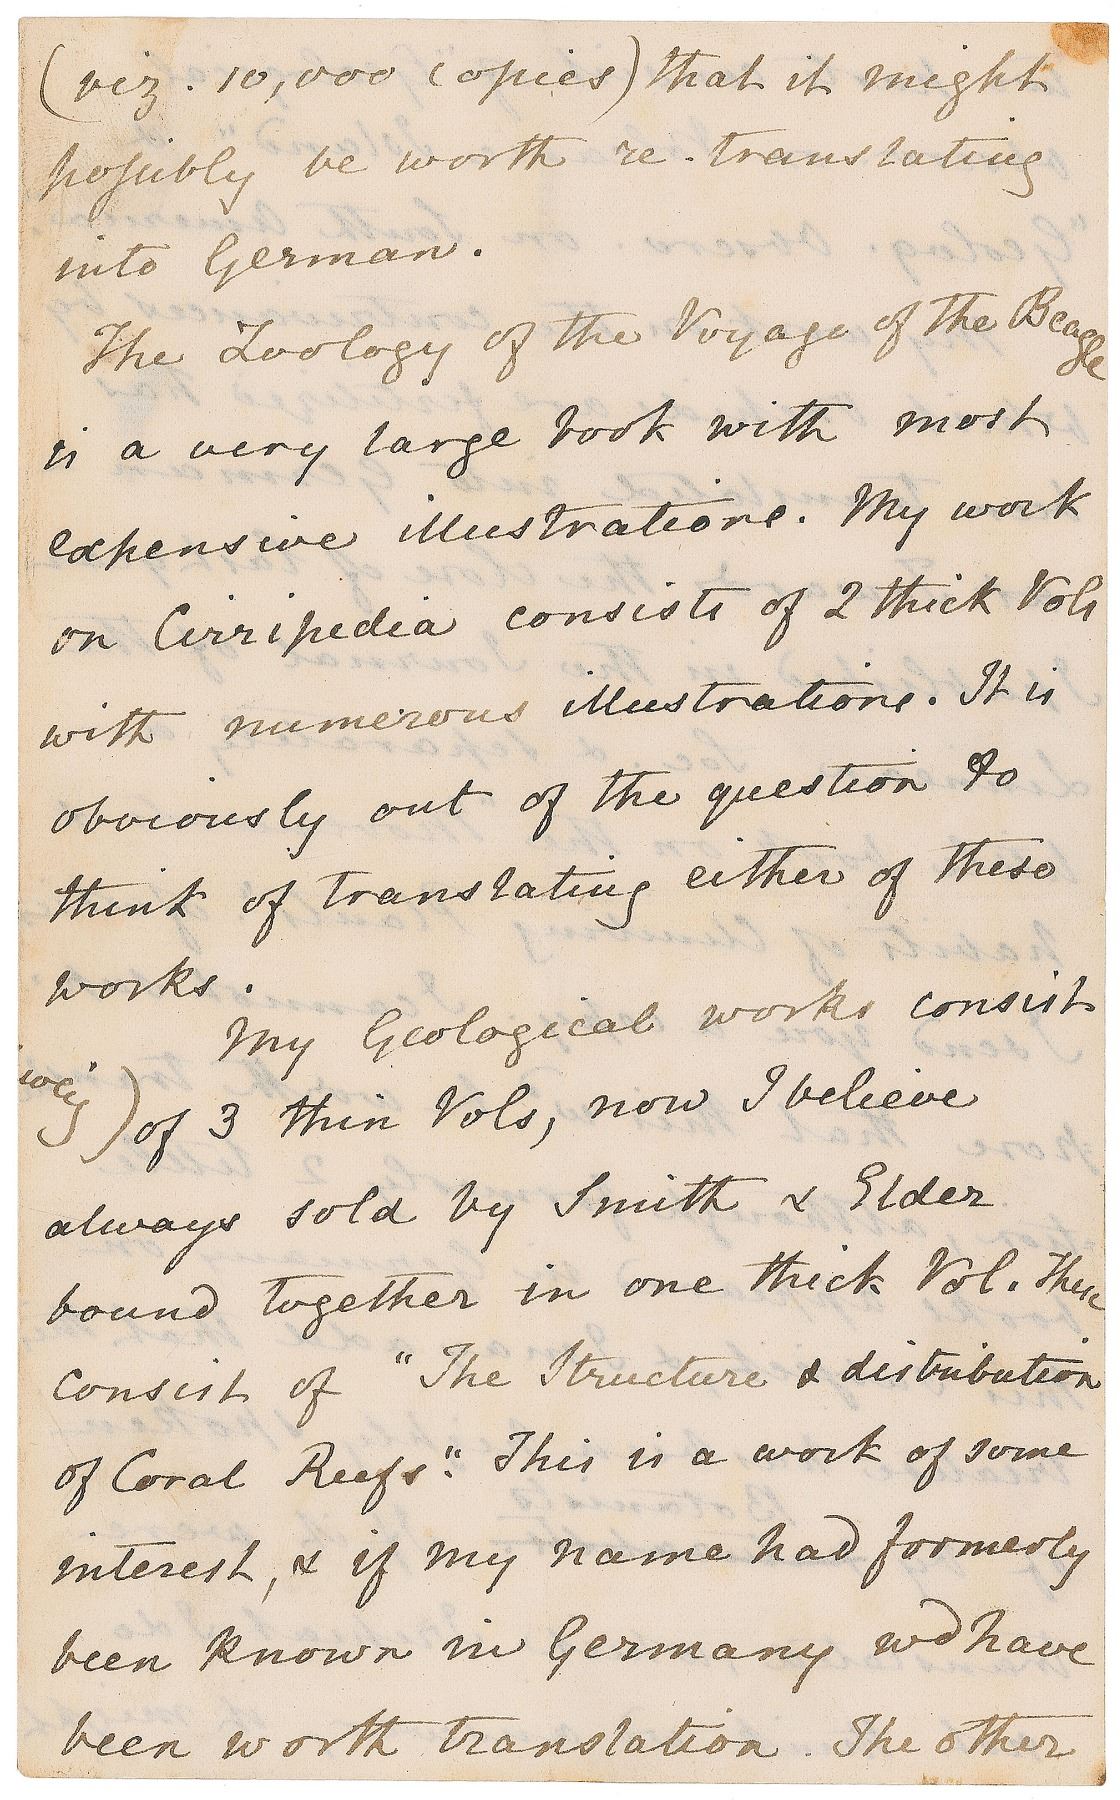 (viz. 10,000 copies) that it might
possibly be worth re-translating
into German.
The Zoology of the Voyage of the Beagle
is a very large book with most
expensive illustrations. My work
on Cirripedia consists of 2 thick Vols
with numerous illustrations. It is
obviously out of the question to
think of translating either of these
works.
My Geological works consist
) of 3 thin Vols, now I believe
always sold by Smith & Elder
bound together in one thick Vol. These
consist of "The Structure & distribution
of Coral Reefs". This is a work of some
interest, & if my name had formerly
been known in Germany wd have
been worth translation. The other